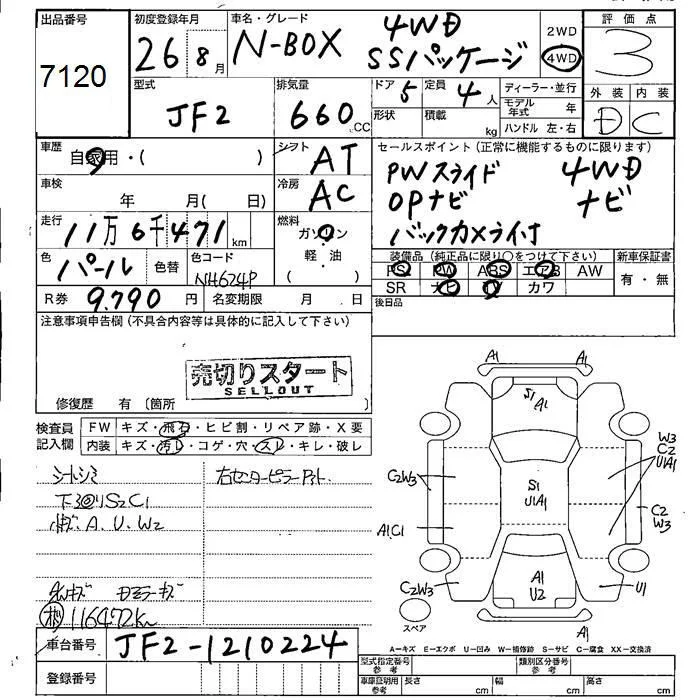 出品番号 初度登録年月 車名・グレード 評価点
7120 26 8月 N-BOX 4WD SSパッケージ 2WD 4WD 3
型式 排気量 ドア 定員 ディーラー・並行 外装 内装
JF2 660 CC 5 4人 モデル年式 年 D C
形状 積載 kg ハンドル 左・右
車歴 自家用・( ) シフト AT
セールスポイント (正常に機能するものに限ります)
車検 年 月( 日) 冷房 AC
PWスライド 4WD
OPナビ ナビ
バックカメラ付
走行 11万6千471km 燃料 ガソリン 軽・油 ( )
色 パール 色替 色コード NH624P
装備品 (純正品に限り○をつけて下さい) 新車保証書
PS PW ABS エアB AW 有・無
SR ナビ TV カワ
R券 9,790円 名変期限 月 日
後日品
注意事項申告欄 (不具合内容等は具体的に記入して下さい)
売切りスタート
SELLOUT
修復歴 有 (箇所 )
検査員記入欄 FW キズ・飛石・ヒビ割・リペア跡・X要
内装 キズ・汚レ・コゲ・穴・スレ・キレ・破レ
シートシミ
下回りS2C1
小キズ、A、U、W2
116472km
A1 A1
S1 A1
W3 C2 U1A1
C2W3
S1 U1A1
C2 W3
A1C1
C2W3
A1 U2
U1
スペア
A1
A-キズ E-エクボ U-凹み W-補修跡 S-サビ C-腐食 XX-交換済
車台番号 JF2-1210224
登録番号
型式指定番号 参考 類別区分番号 参考
車庫証明用 参考 長さ cm 幅 cm 高さ cm